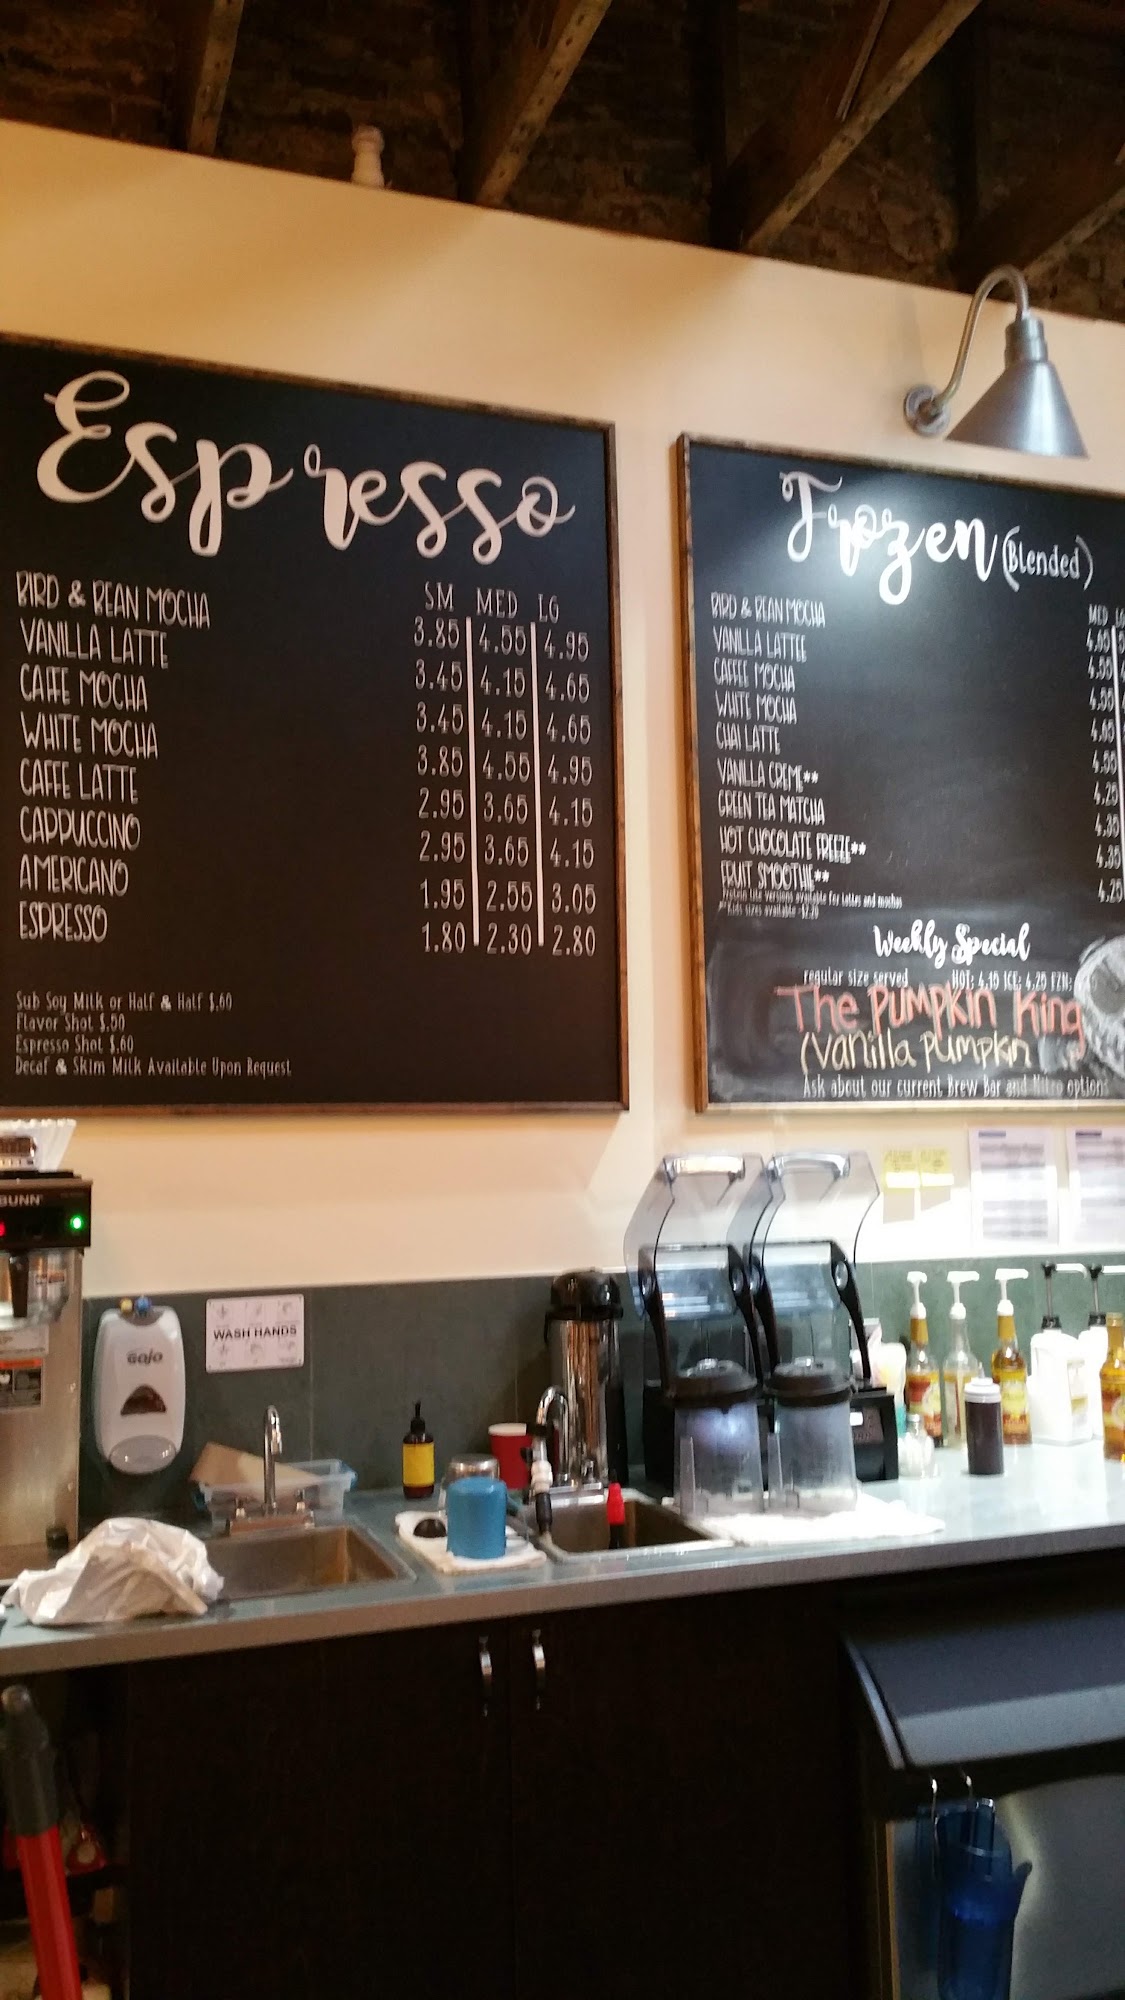 Espresso
SM MED LG
BIRD & BEAN MOCHA 3.85 4.55 4.95
VANILLA LATTE 3.45 4.15 4.65
CAFFE MOCHA 3.45 4.15 4.65
WHITE MOCHA 3.85 4.55 4.95
CAFFE LATTE 2.95 3.65 4.15
CAPPUCCINO 2.95 3.65 4.15
AMERICANO 1.95 2.55 3.05
ESPRESSO 1.80 2.30 2.80
Sub Soy Milk or Half & Half $.60
Flavor Shot $.50
Espresso Shot $.60
Decaf & Skim Milk Available Upon Request
Frozen (Blended)
MED LG
BIRD & BEAN MOCHA
VANILLA LATTEE
CAFFEE MOCHA
WHITE MOCHA
CHAI LATTE
VANILLA CREME**
GREEN TEA MATCHA
HOT CHOCOLATE FREEZE**
FRUIT SMOOTHIE** 4.25
Protein lite versions available for lattes and mochas
**Kids sizes available -$2.20
Weekly Special
regular size served HOT: 4.15 ICE: 4.25 FZN:
The Pumpkin King
(vanilla pumpkin
Ask about our current Brew Bar and Nitro options
BUNN
GOJO
WASH HANDS